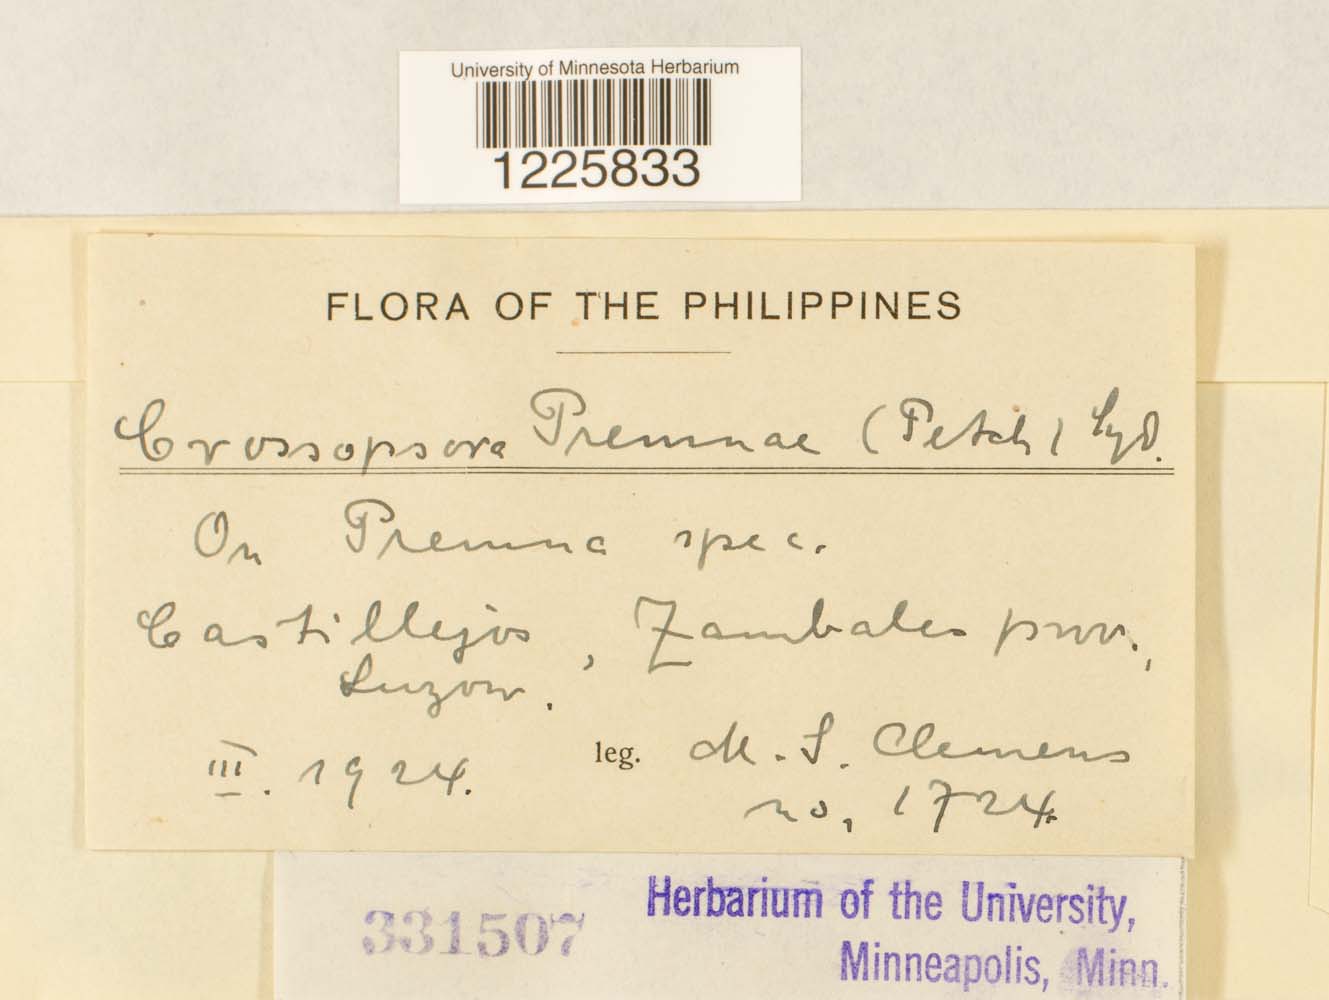 University of Minnesota Herbarium
1225833
FLORA OF THE PHILIPPINES
Crossopsora Premnae (Petch) Syd.
On Premna spec.
Castillejos, Zambales prov.,
Luzon.
III. 1924.
leg. M. S. Clemens
no. 1724
331507
Herbarium of the University,
Minneapolis, Minn.